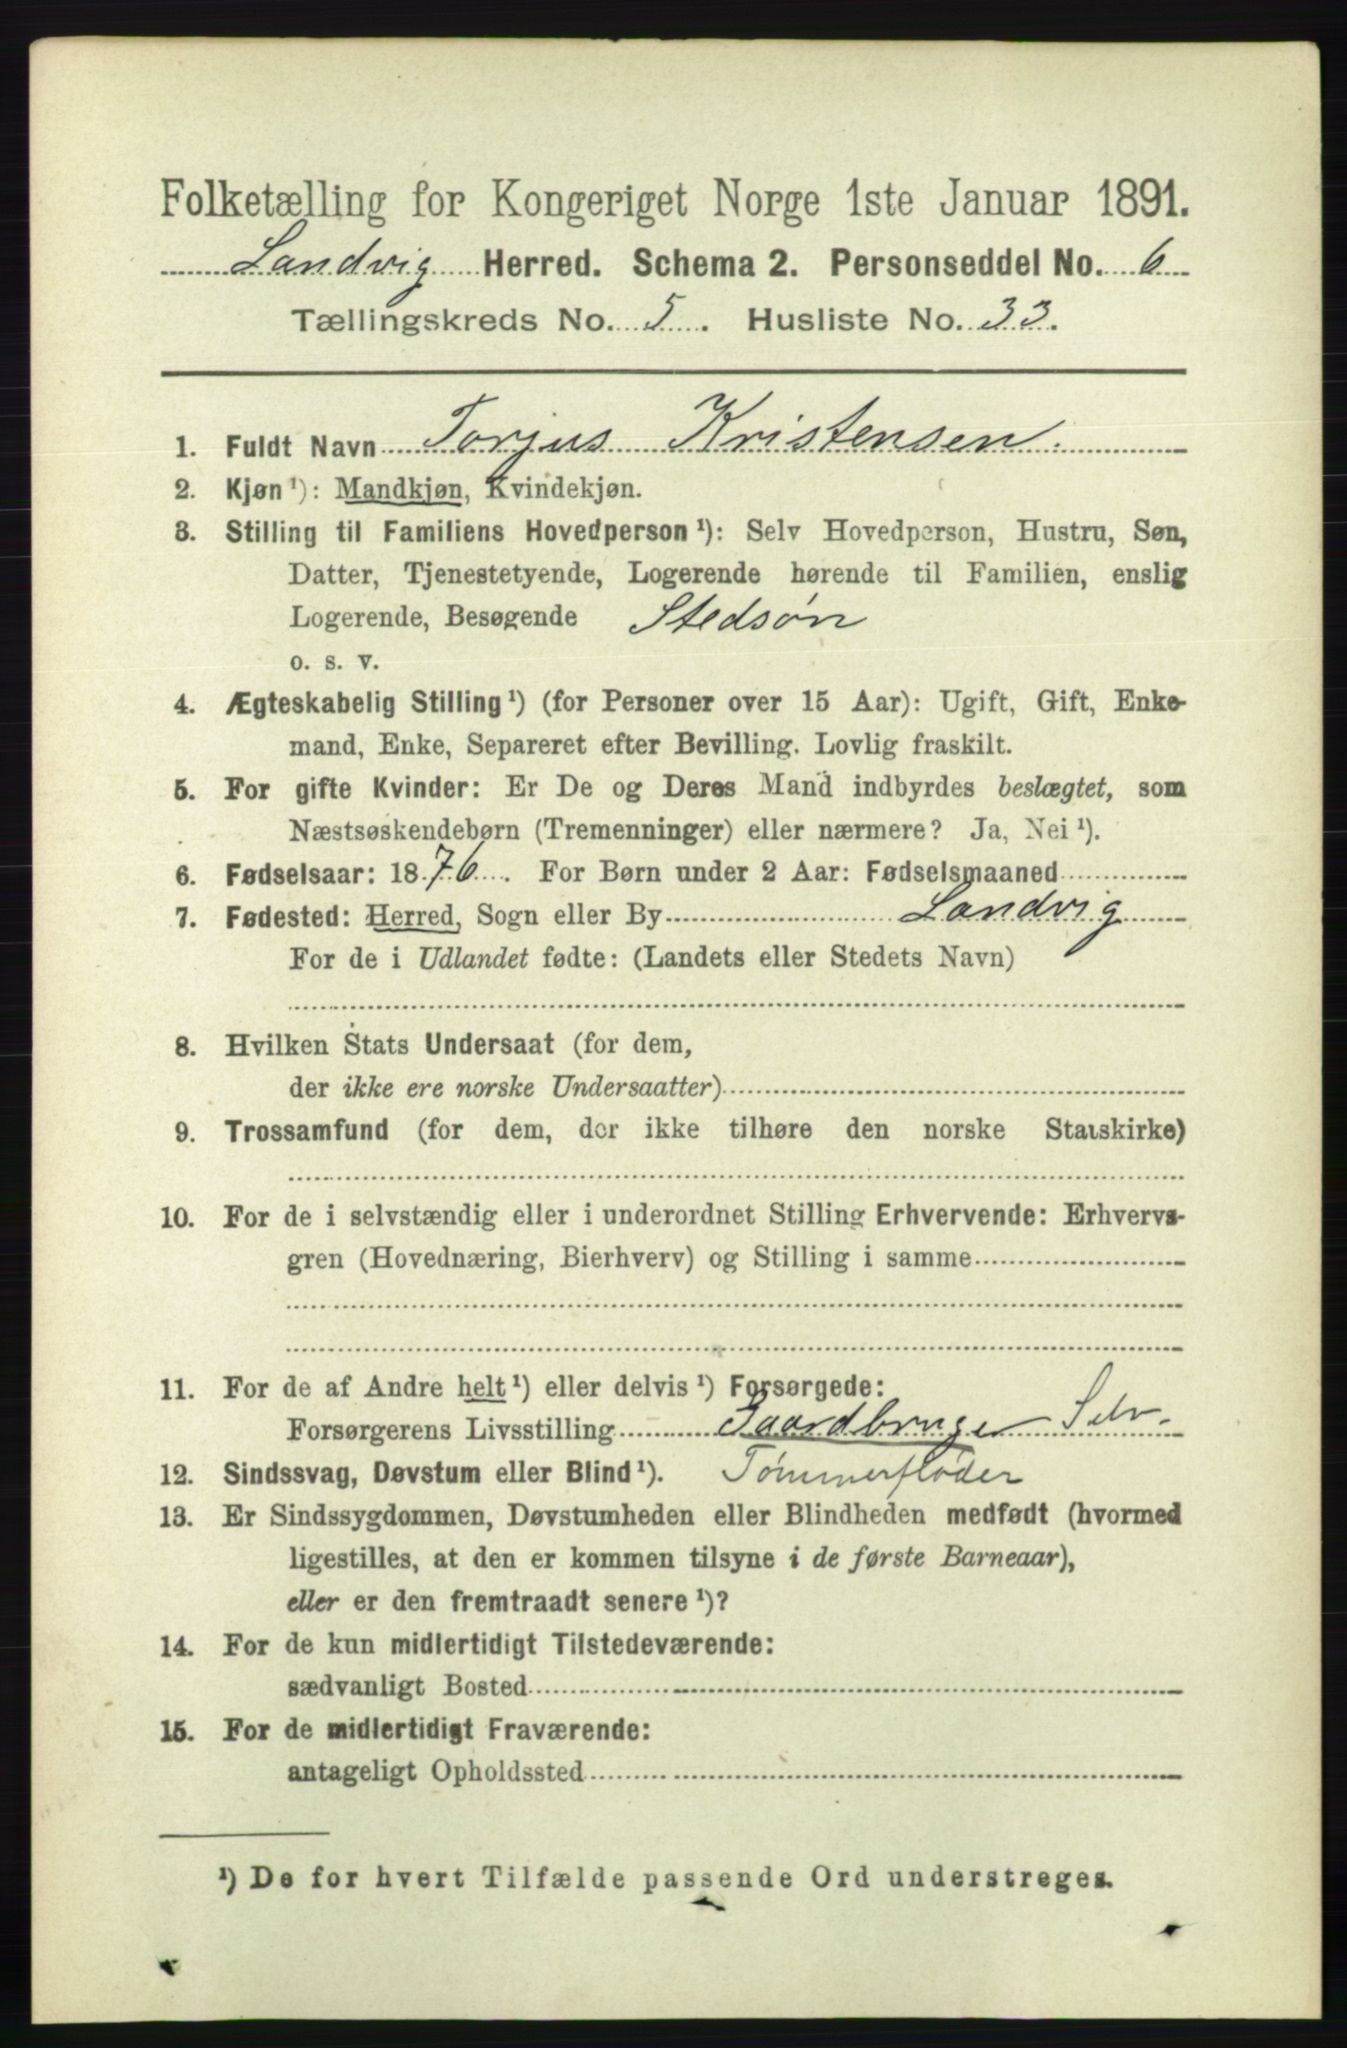 Folketælling for Kongeriget Norge 1ste Januar 1891.
Landvig Herred. Schema 2. Personseddel No. 6
Tællingskreds No. 5. Husliste No. 33.
1. Fuldt Navn Torjus Kristensen.
2. Kjøn¹): Mandkjøn, Kvindekjøn.
3. Stilling til Familiens Hovedperson¹): Selv Hovedperson, Hustru, Søn,
Datter, Tjenestetyende, Logerende hørende til Familien, enslig
Logerende, Besøgende Stedsøn
o. s. v.
4. Ægteskabelig Stilling¹) (for Personer over 15 Aar): Ugift, Gift, Enke-
mand, Enke, Separeret efter Bevilling. Lovlig fraskilt.
5. For gifte Kvinder: Er De og Deres Mand indbyrdes beslægtet, som
Næstsøskendebørn (Tremenninger) eller nærmere? Ja, Nei¹).
6. Fødselsaar: 1876. For Børn under 2 Aar: Fødselsmaaned
7. Fødested: Herred, Sogn eller By Landvig
For de i Udlandet fødte: (Landets eller Stedets Navn)
8. Hvilken Stats Undersaat (for dem,
der ikke ere norske Undersaatter)
9. Trossamfund (for dem, der ikke tilhøre den norske Statskirke)
10. For de i selvstændig eller i underordnet Stilling Erhvervende: Erhvervs-
gren (Hovednæring, Bierhverv) og Stilling i samme
11. For de af Andre helt¹) eller delvis¹) Forsørgede:
Forsørgerens Livsstilling Gaardbruger Selv.
12. Sindssvag, Døvstum eller Blind¹). Tømmerfløder
13. Er Sindssygdommen, Døvstumheden eller Blindheden medfødt (hvormed
ligestilles, at den er kommen tilsyne i de første Barneaar),
eller er den fremtraadt senere¹)?
14. For de kun midlertidigt Tilstedeværende:
sædvanligt Bosted
15. For de midlertidigt Fraværende:
antageligt Opholdssted
¹) De for hvert Tilfælde passende Ord understreges.